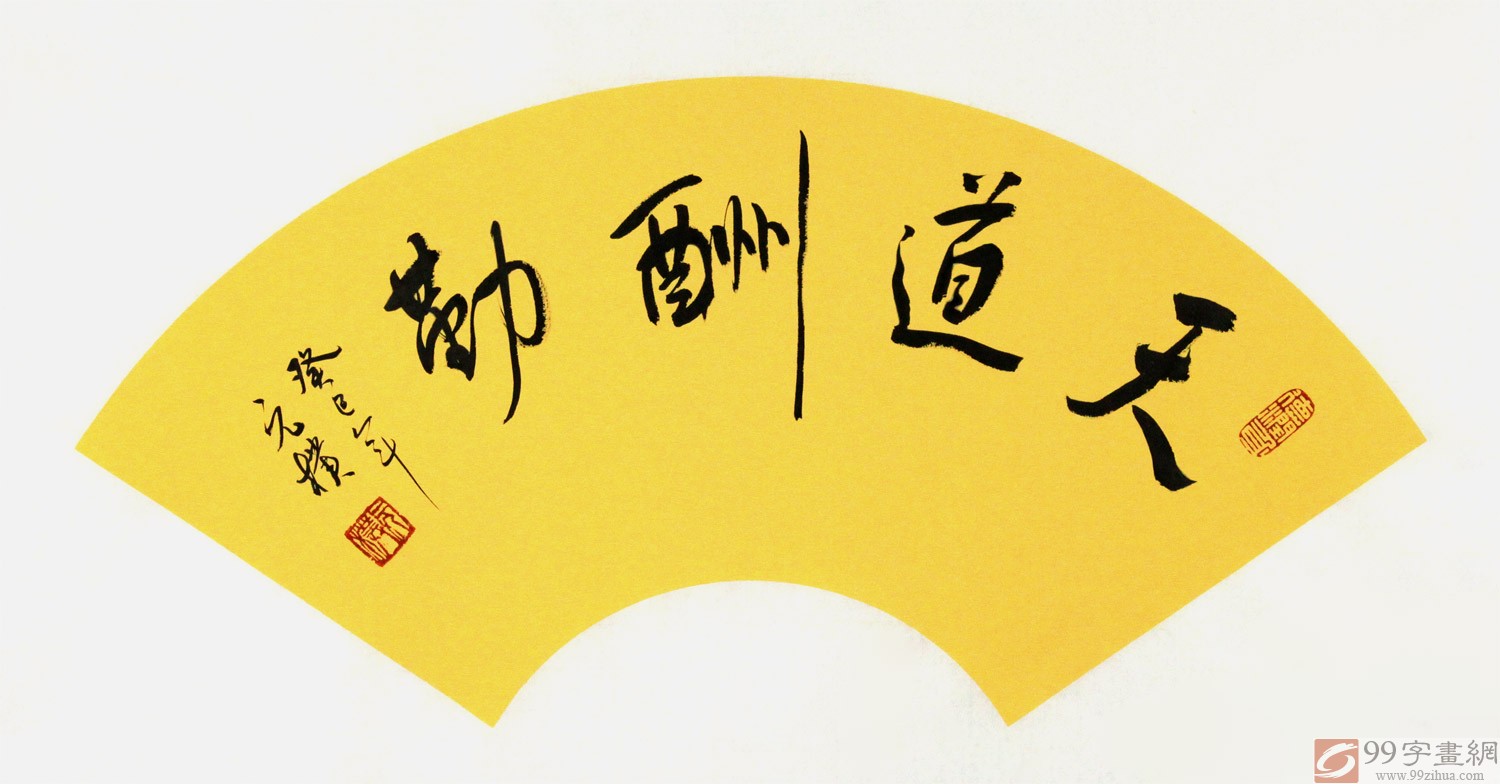 天道酬勤
癸巳年
元横
99字畫網
www.99zihua.com